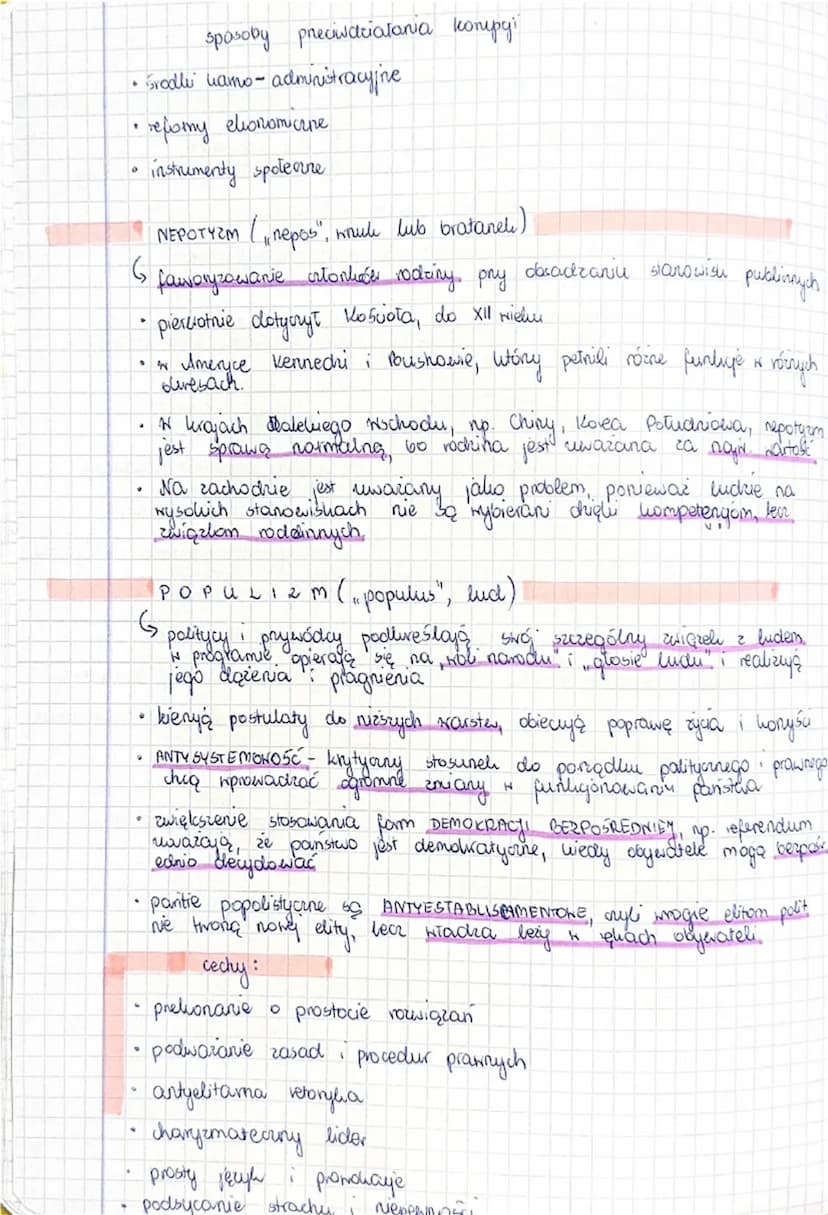 sposoby przeciwdziałania korupcji
• środki karno-administracyjne
• reformy ekonomiczne
• instrumenty społeczne
NEPOTYZM („nepos", wnuk lub bratanek)
↳ faworyzowanie członków rodziny przy obsadzaniu stanowisk publicznych
• pierwotnie dotyczył Kościoła, do XII wieku
• w Ameryce Kennedzi i Bushowie, którzy pełnili różne funkcje w różnych
okresach.
• W krajach Dalekiego Wschodu, np. Chiny, Korea Południowa, nepotyzm
jest sprawą normalną, bo rodzina jest uważana za najw. wartość
• Na zachodzie jest uważany jako problem, ponieważ ludzie na
wysokich stanowiskach nie są wybierani dzięki kompetencjom, lecz
związkom rodzinnych
POPULIZM („populus", lud)
↳ politycy i przywódcy podkreślają swój szczególny związek z ludem
w programie opierają się na „woli narodu" i „głosie ludu" i realizują
jego dążenia i pragnienia
• kierują postulaty do niższych warstw, obiecują poprawę życia i korzyści
• ANTYSYSTEMOWOŚĆ - krytyczny stosunek do porządku politycznego i prawnego
chcą wprowadzać ogromne zmiany w funkcjonowaniu państwa
• zwiększenie stosowania form DEMOKRACJI BEZPOŚREDNIEJ, np. referendum
uważają, że państwo jest demokratyczne, kiedy obywatele mogą bezpośr
ednio decydować
• partie popolistyczne są ANTYESTABLISHMENTOWE, czyli wrogie elitom polit
nie tworzą nowej elity, lecz władza leży w rękach obywateli.
cechy:
• przekonanie o prostocie rozwiązań
• podważanie zasad i procedur prawnych
• antyelitarna retoryka
• charyzmateczny lider
• prosty język i prowokacje
• podsycanie strachu i niepewności